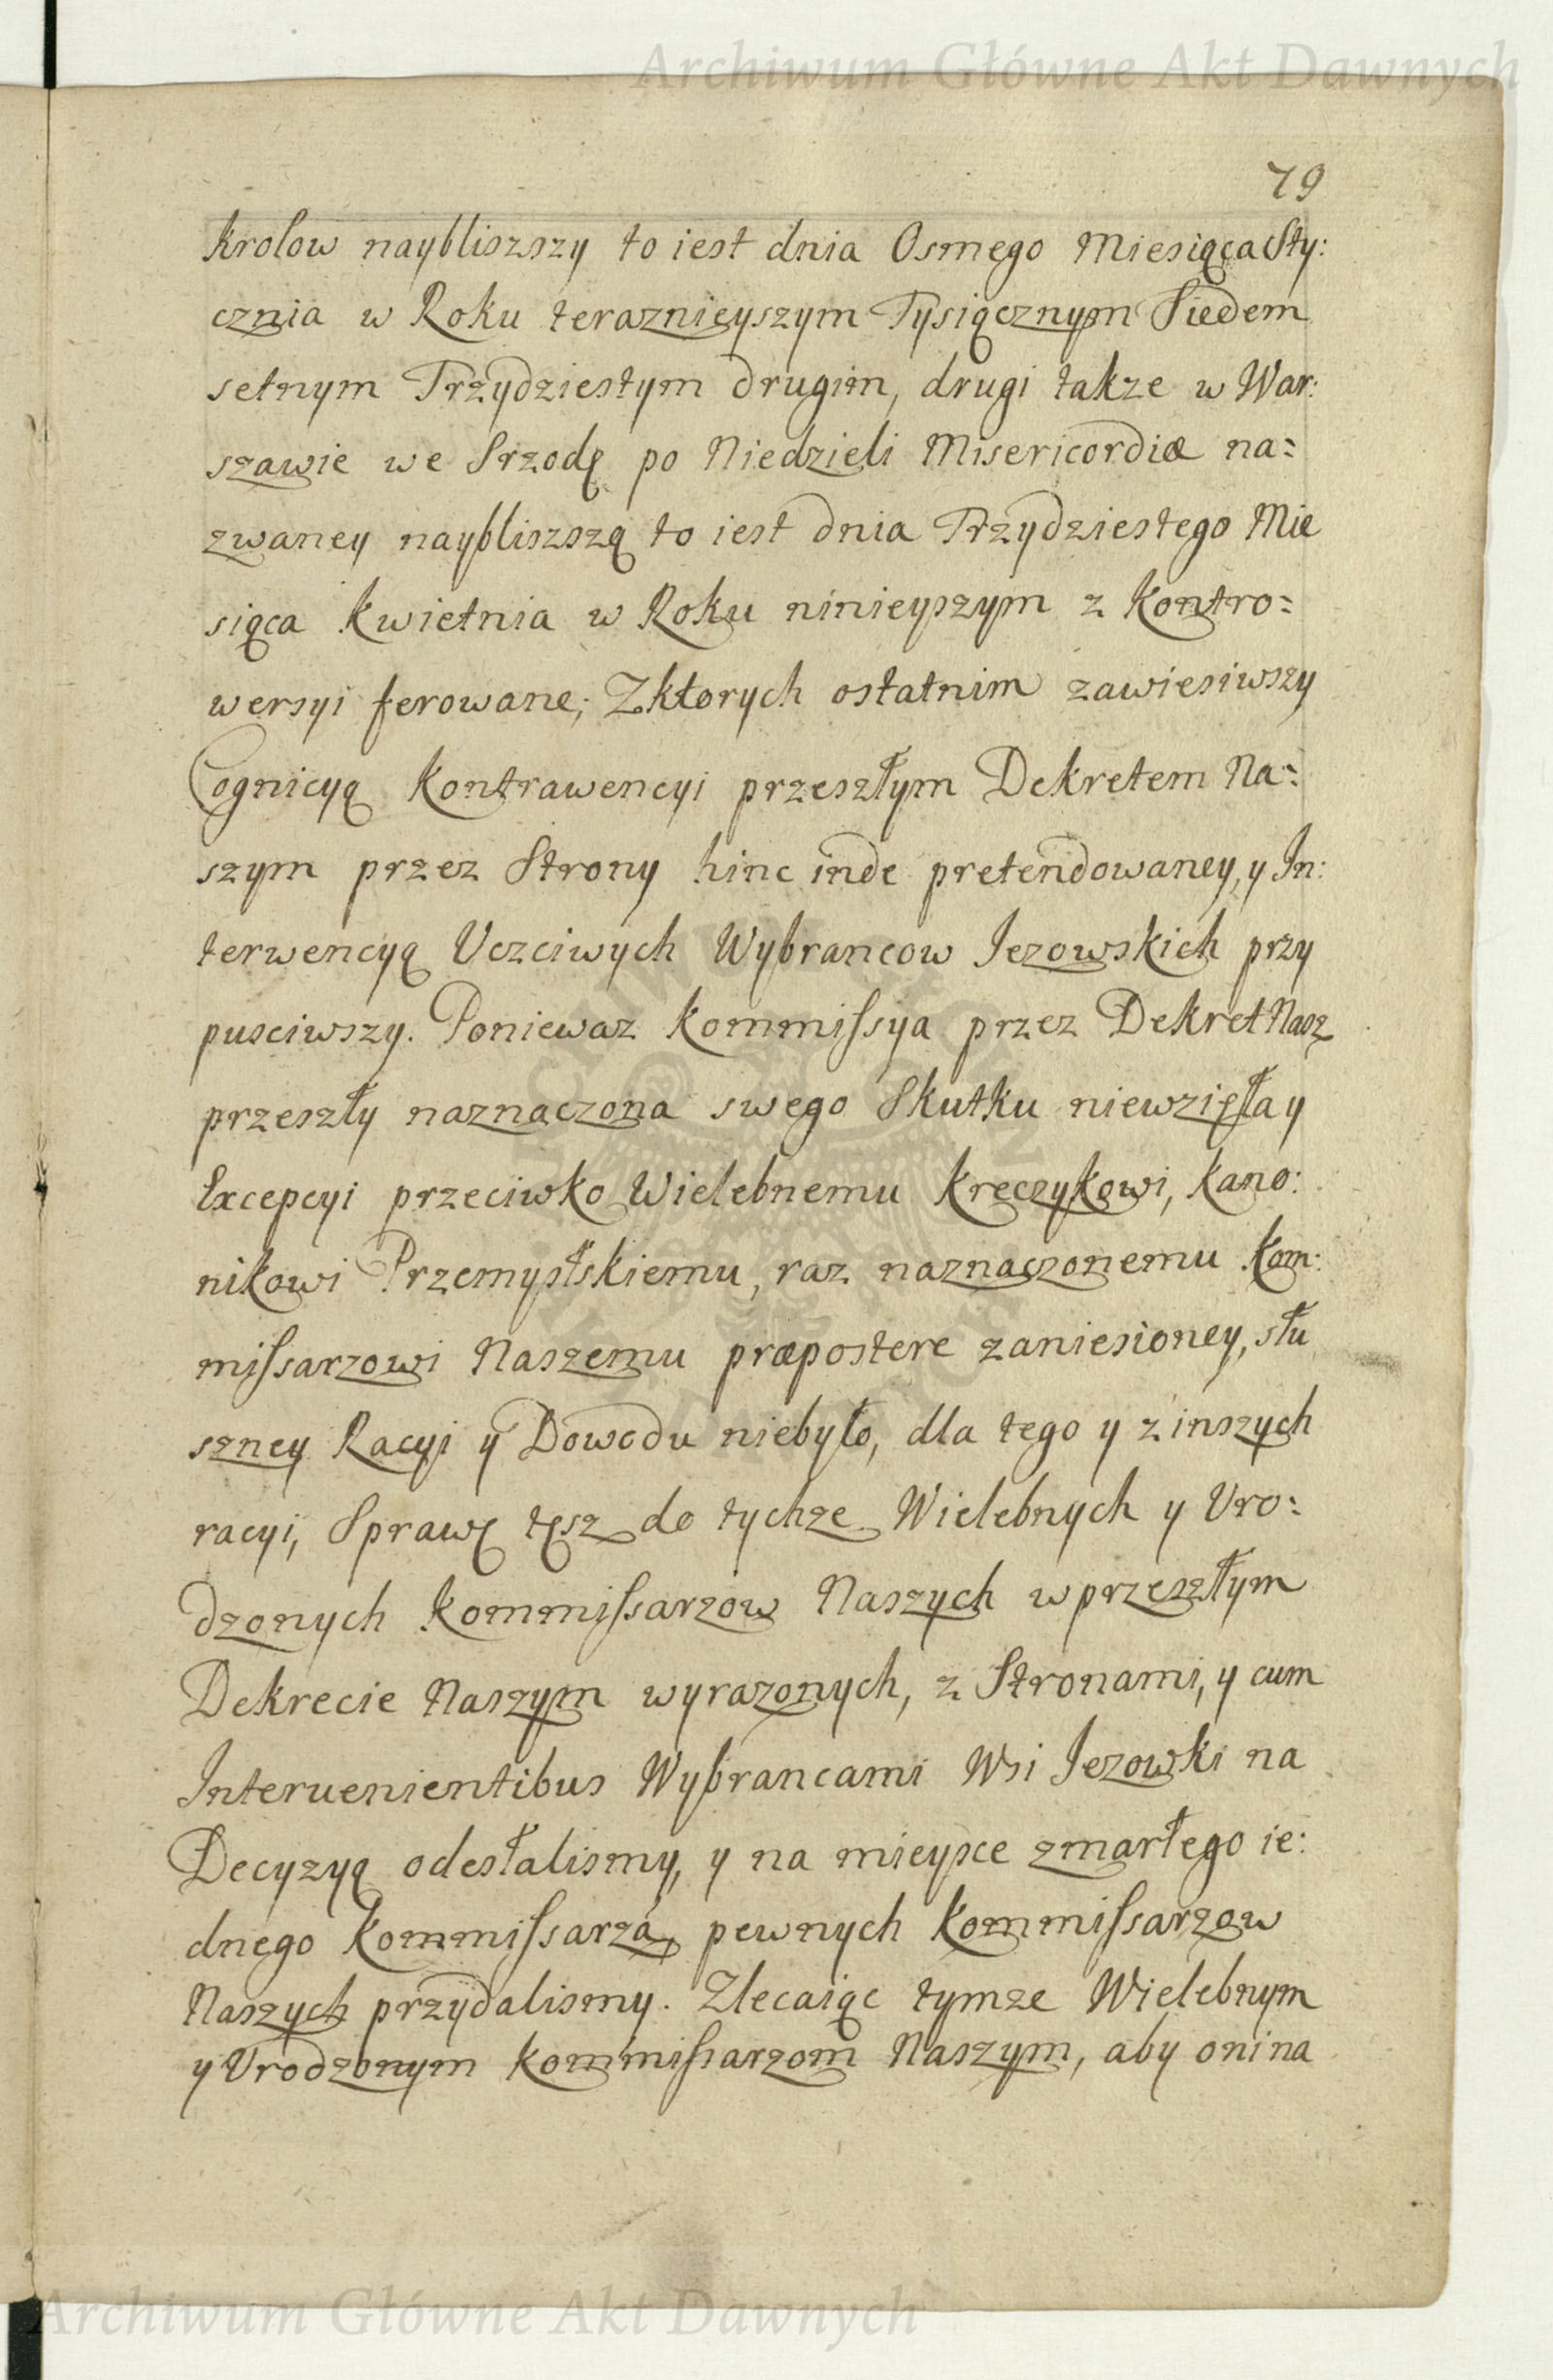 Archiwum Główne Akt Dawnych
79
Krolow naybliszszy to iest dnia Osmego Miesiąca Sty:
cznia w Roku teraznieyszym Tysiącznym Siedem
setnym Trzydziestym drugim, drugi takze w War:
szawie we Srzodę po Niedzieli Misericordiæ na=
zwaney naybliszszą to iest dnia Trzydziestego Mie
siąca Kwietnia w Roku ninieyszym z Kontro=
wersyi ferowane; Zktorych ostatnim zawiesiwszy
Cognicyą Kontrawencyi przeszłym Dekretem Na=
szym przez Strony hinc inde pretendowaney, y In:
terwencyą Uczciwych Wybrancow Iezowskich przy
pusciwszy. Poniewaz Kommissya przez Dekret Nasz
przeszły naznaczona swego Skutku niewzięła y
Excepcyi przeciwko Wielebnemu Kreczykowi, Kano:
nikowi Przemysłskiemu, raz naznaczonemu Kom:
missarzowi Naszemu præpostere zaniesioney, słu
szney Racyi y Dowodu niebyło, dla tego y z inszych
racyi, Sprawę tęsz do tychze Wielebnych y Uro:
dzonych Kommissarzow Naszych w przeszłym
Dekrecie Naszym wyrazonych, z Stronami, y cum
Interuenientibus Wybrancami Wsi Iezowki na
Decyzyą odesłalismy, y na mieysce zmarłego ie:
dnego Kommissarzá, pewnych Kommissarzow
Naszych przydalismy. Zlecaiąc tymze Wielebnym
y Urodzonym Kommissarzom Naszym, aby oni na
Archiwum Główne Akt Dawnych